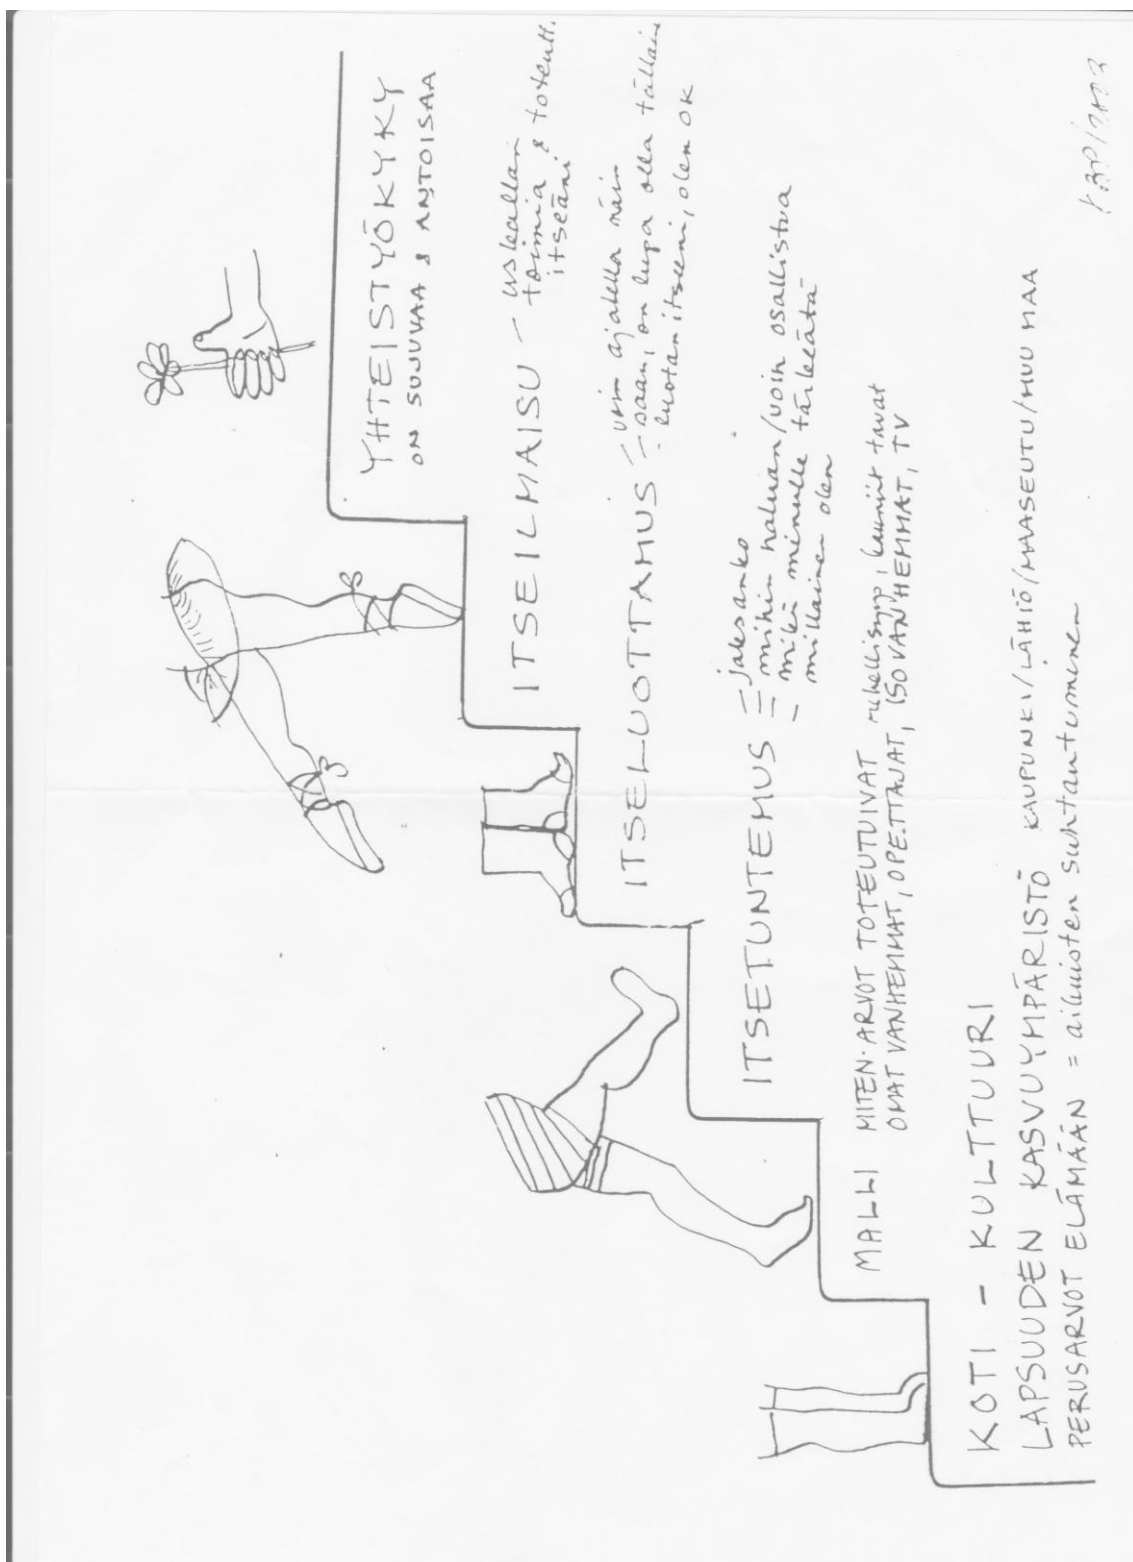 YHTEISTYÖKYKY
ON SUJUVAA & ANTOISAA
ITSEILMAISU – uskallan
toimia & toteutt.
itseäni
ITSELUOTTAMUS – voin ajatella näin
– saan, on lupa olla tällain
- luotan itseeni, olen OK
ITSETUNTEMUS – jaksanko
– mihin haluan/voin osallistua
– mikä minulle tärkeätä
– millainen olen
MALLI MITEN ARVOT TOTEUTUIVAT rehellisyys, kauniit tavat
OMAT VANHEMMAT, OPETTAJAT, ISOVANHEMMAT, TV
KOTI – KULTTUURI
LAPSUUDEN KASVUYMPÄRISTÖ KAUPUNKI/LÄHIÖ/MAASEUTU/MUU MAA
PERUSARVOT ELÄMÄÄN = aikuisten suhtautuminen